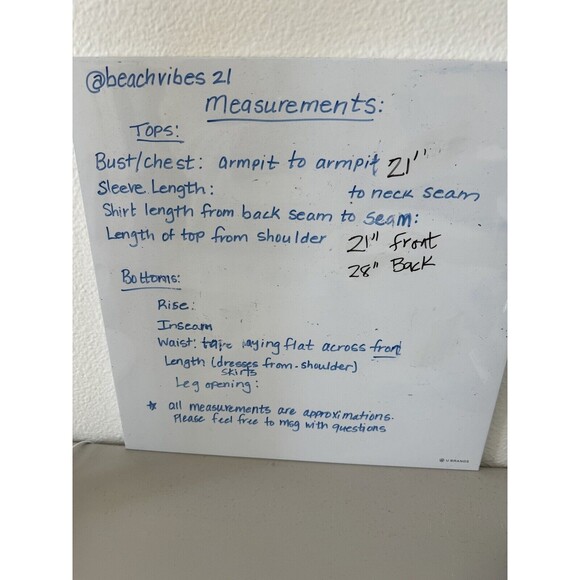 @beachvibes 21
Measurements:
Tops:
Bust/chest: armpit to armpit 21"
Sleeve Length: to neck seam
Shirt length from back seam to seam:
Length of top from shoulder 21" front
28" Back
Bottoms:
Rise:
Inseam
Waist: laying flat across front
Length (dresses from shoulder)
skirts
Leg opening:
* all measurements are approximations.
Please feel free to msg with questions
U BRANDS